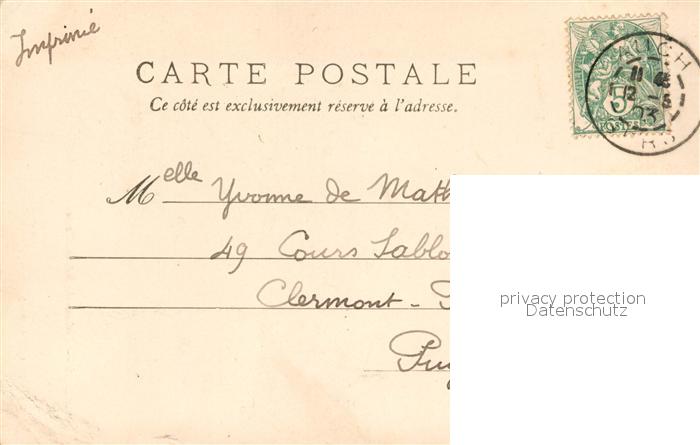 Imprimé
CARTE POSTALE
Ce côté est exclusivement réservé à l'adresse.
Melle Yvonne de Math
49 Cours Sablo
Clermont-
Puy
privacy protection
Datenschutz
5
POSTES